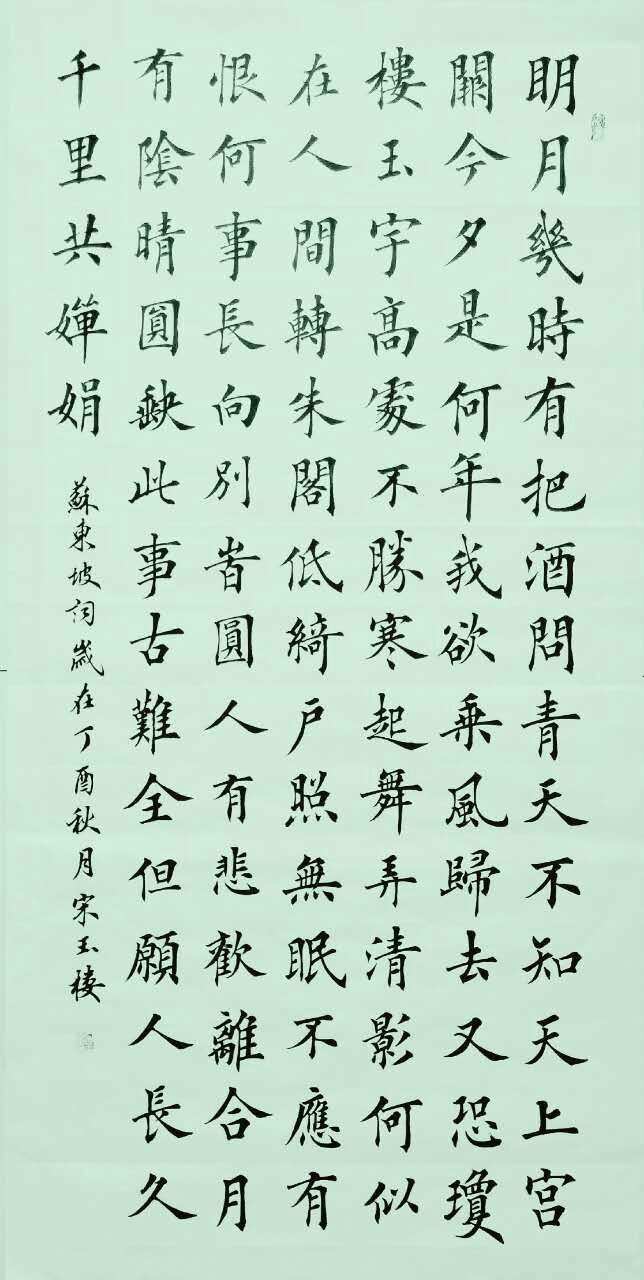 明月幾時有把酒問青天不知天上宮
闕今夕是何年我欲乗風歸去又恐瓊
樓玉宇高處不勝寒起舞弄清影何似
在人間轉朱閣低綺戶照無眠不應有
恨何事長向別旹圓人有悲歡離合月
有陰晴圓缺此事古難全但願人長久
千里共嬋娟
蘇東坡詞歲在丁酉秋月宋玉樓